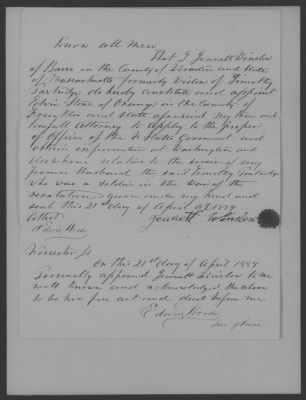 Know all Men
That I Jennett Winslow
of Barre in the County of Worcester and State
of Massachusetts formerly Widow of Timothy
Partridge do hereby constitute and appoint
Stone of Orange in the County of
Franklin and State aforesaid my true and
lawful Attorney to apply to the proper
Offices of the U States Government and
obtain information at Washington and
elsewhere relative to the service of my
former Husband the said Timothy Partridge
who was a soldier in the War of the
revolution given under my hand and
seal this 21st day of April AD 1849
Attest Jennett Winslow
Edwin Woods
Worcester Ss
On this 21st day of April 1849
Personally appeared Jennett Winslow to me
well known and acknowledged the above
to be her free act and deed before me
Edwin Woods